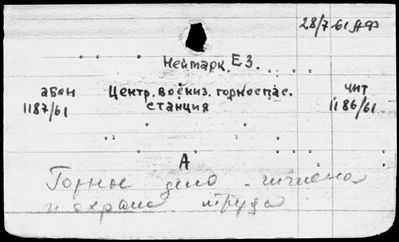 28/7-61 АФ
Неймарк Е.З.
абон
1187/61
Центр. воениз. горноспас.
станция
чит
1186/61
А
Горное дело - гигиена
и охрана труда